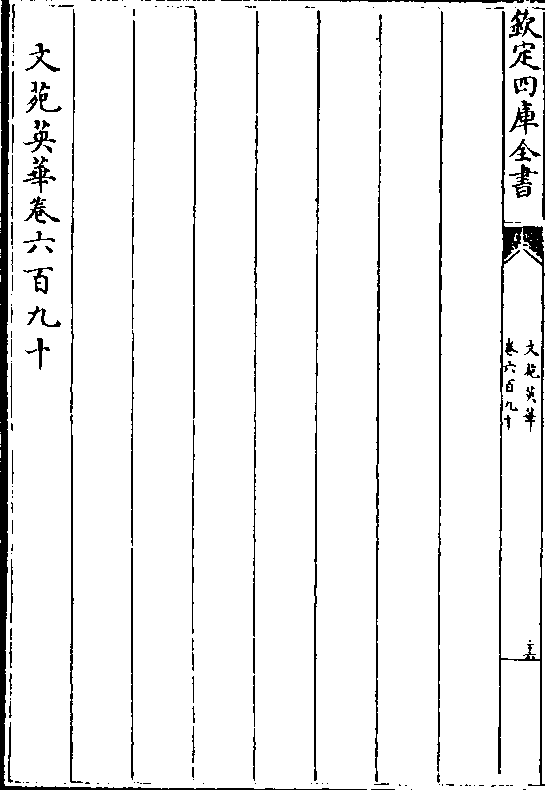 欽定四庫全書
文苑英華
卷六百九十
文苑英華卷六百九十